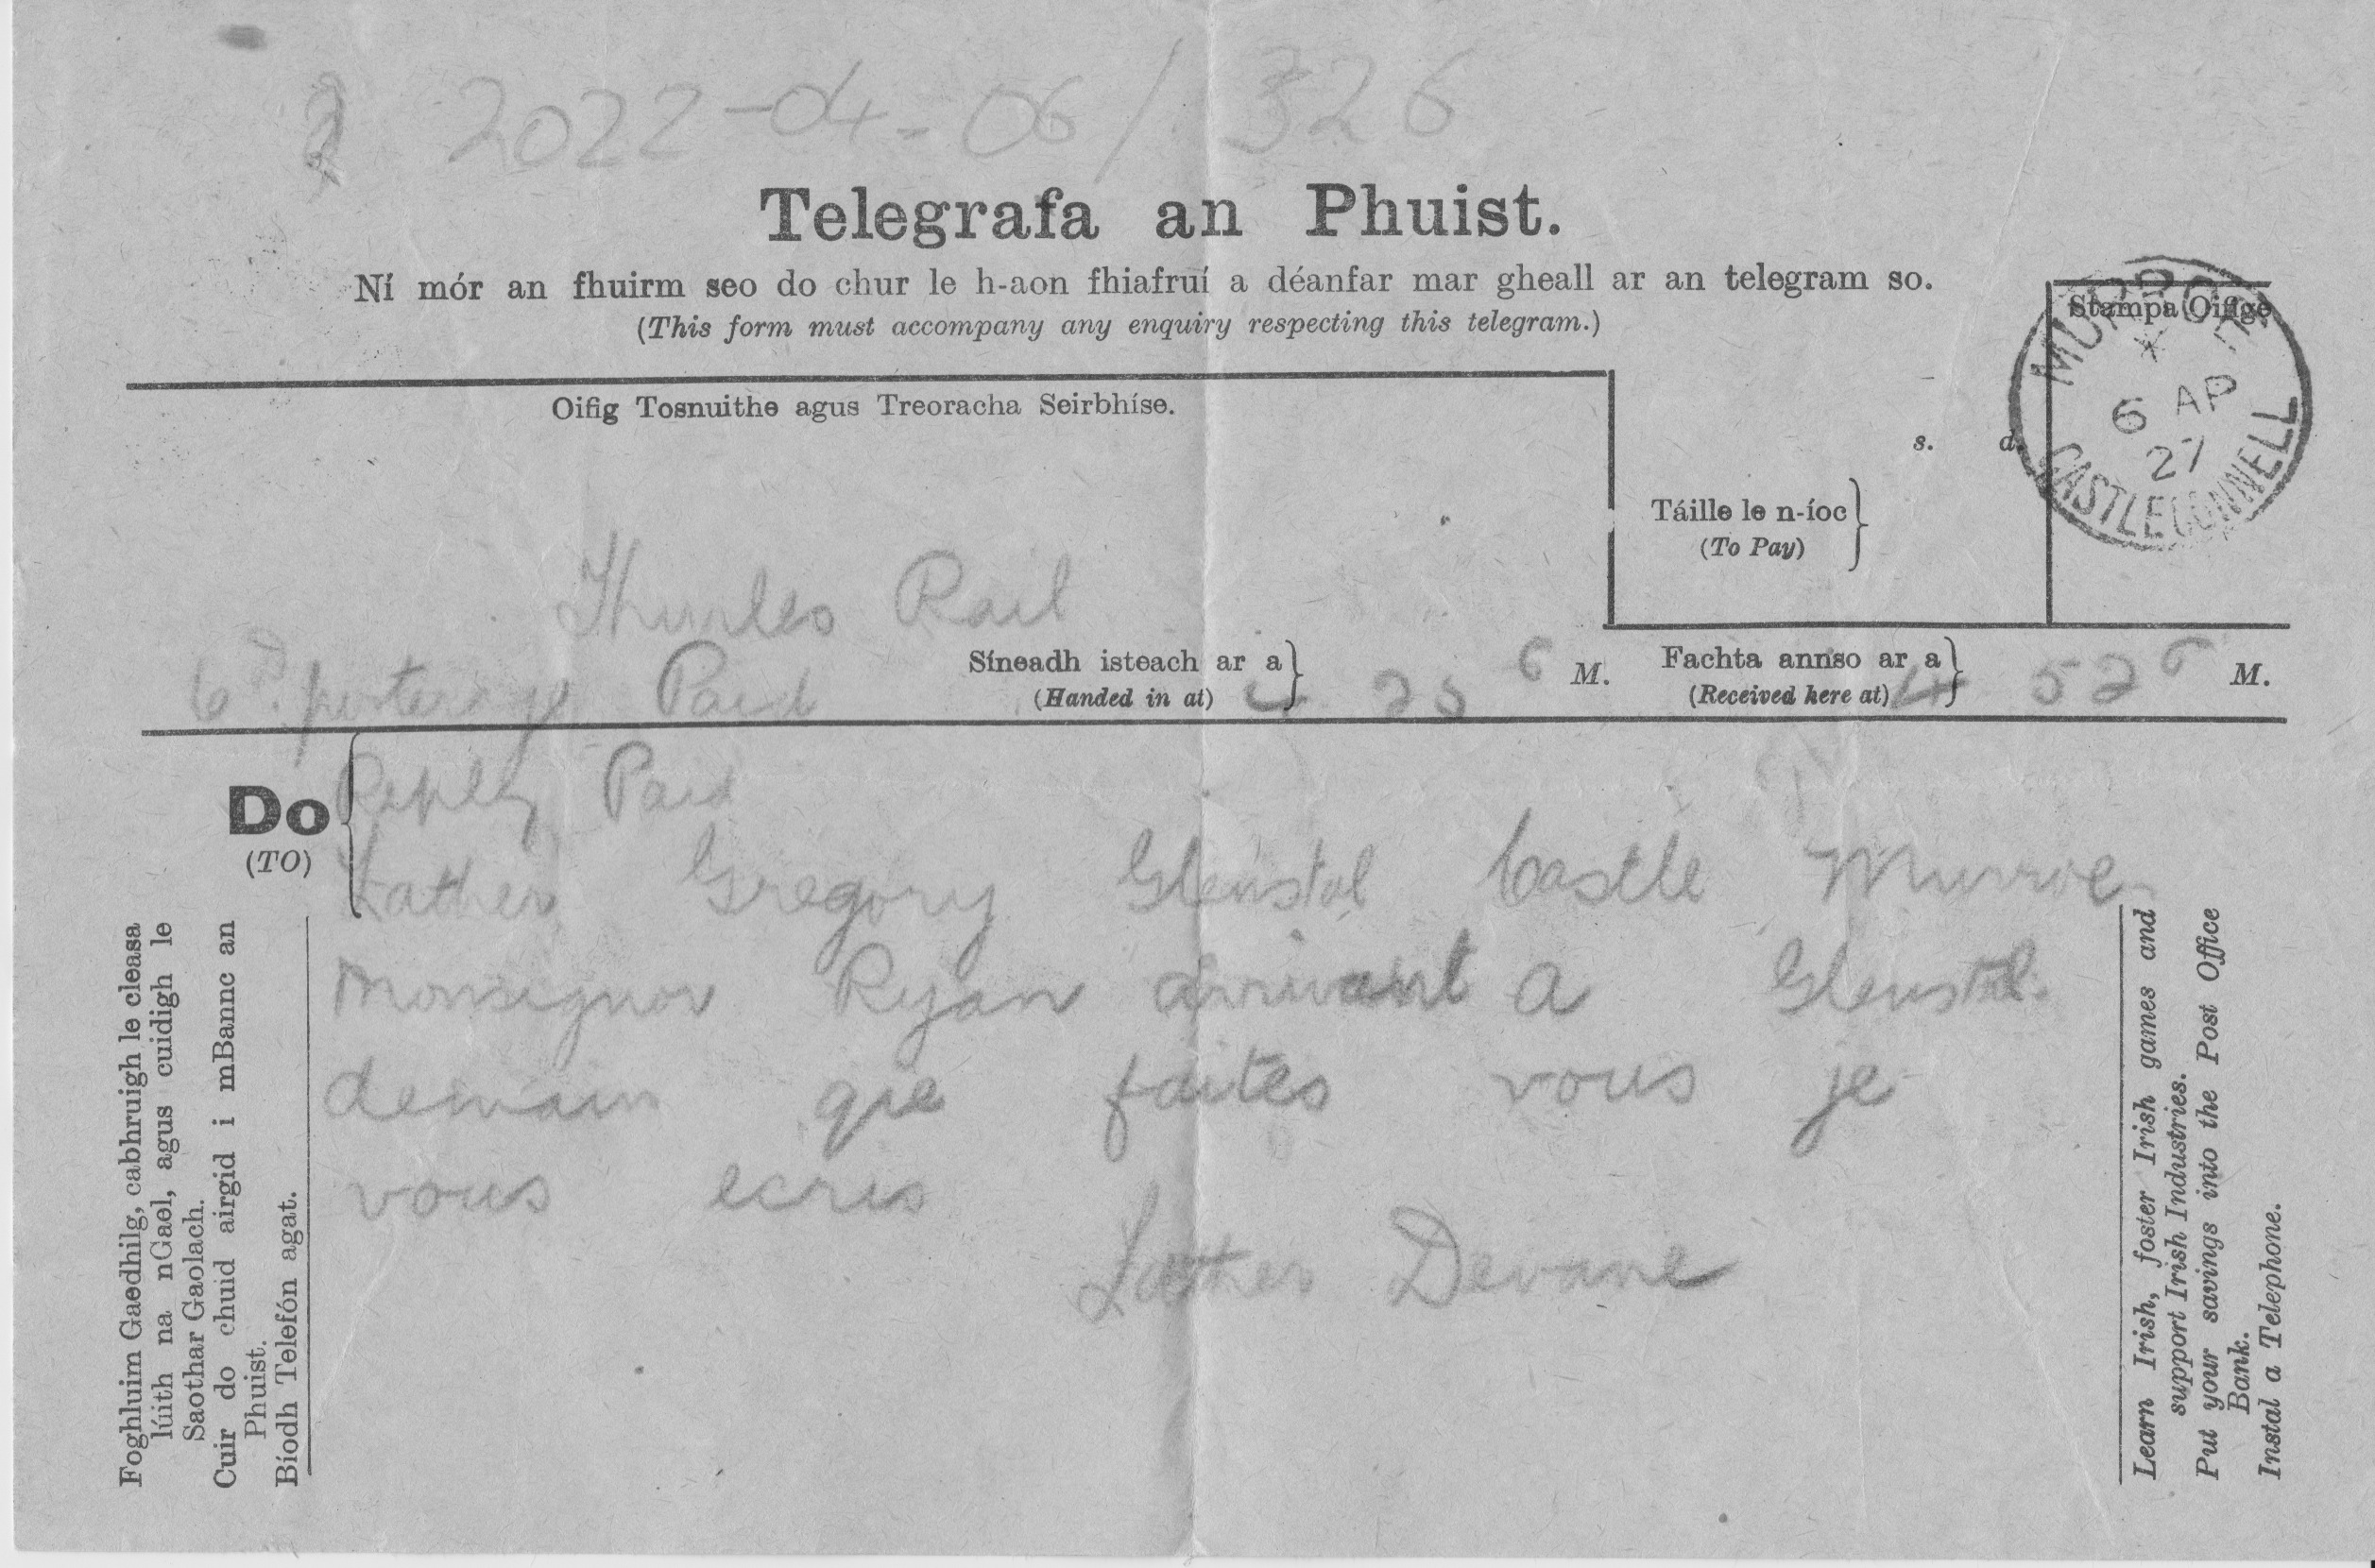 2022-04-06/326
Telegrafa an Phuist.
Ní mór an fhuirm seo do chur le h-aon fhiafruí a déanfar mar gheall ar an telegram so.
(This form must accompany any enquiry respecting this telegram.)
Stampa Oifige
6 AP
27
CASTLECONNELL
Oifig Tosnuithe agus Treoracha Seirbhíse.
s. d.
Táille le n-íoc
(To Pay)
Thurles Rail
6D. porterage Paid
Síneadh isteach ar a
(Handed in at)
4 25 M.
Fachta annso ar a
(Received here at)
4 52 M.
Do
(TO)
Reply Paid
Father Gregory Glenstal Castle Murroe
Monsignor Ryan arrivant a Glenstal.
demain que faites vous je
vous ecris
Father Devane
Foghluim Gaedhilg, cabhruigh le cleasa
lúith na nGael, agus cuidigh le
Saothar Gaolach.
Cuir do chuid airgid i mBannc an
Phuist.
Bíodh Telefón agat.
Learn Irish, foster Irish games and
support Irish Industries.
Put your savings into the Post Office
Bank.
Instal a Telephone.